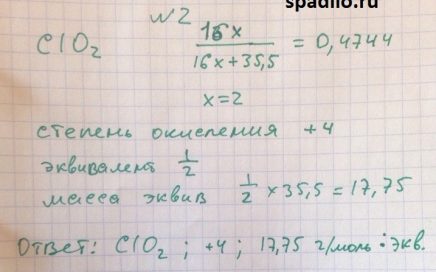 spadilo.ru
№2
ClO₂ 16x / 16x+35,5 = 0,4744
x=2
степень окисления +4
эквивалент 1/2
масса эквив 1/2 × 35,5 = 17,75
Ответ: ClO₂ ; +4 ; 17,75 г/моль·экв.